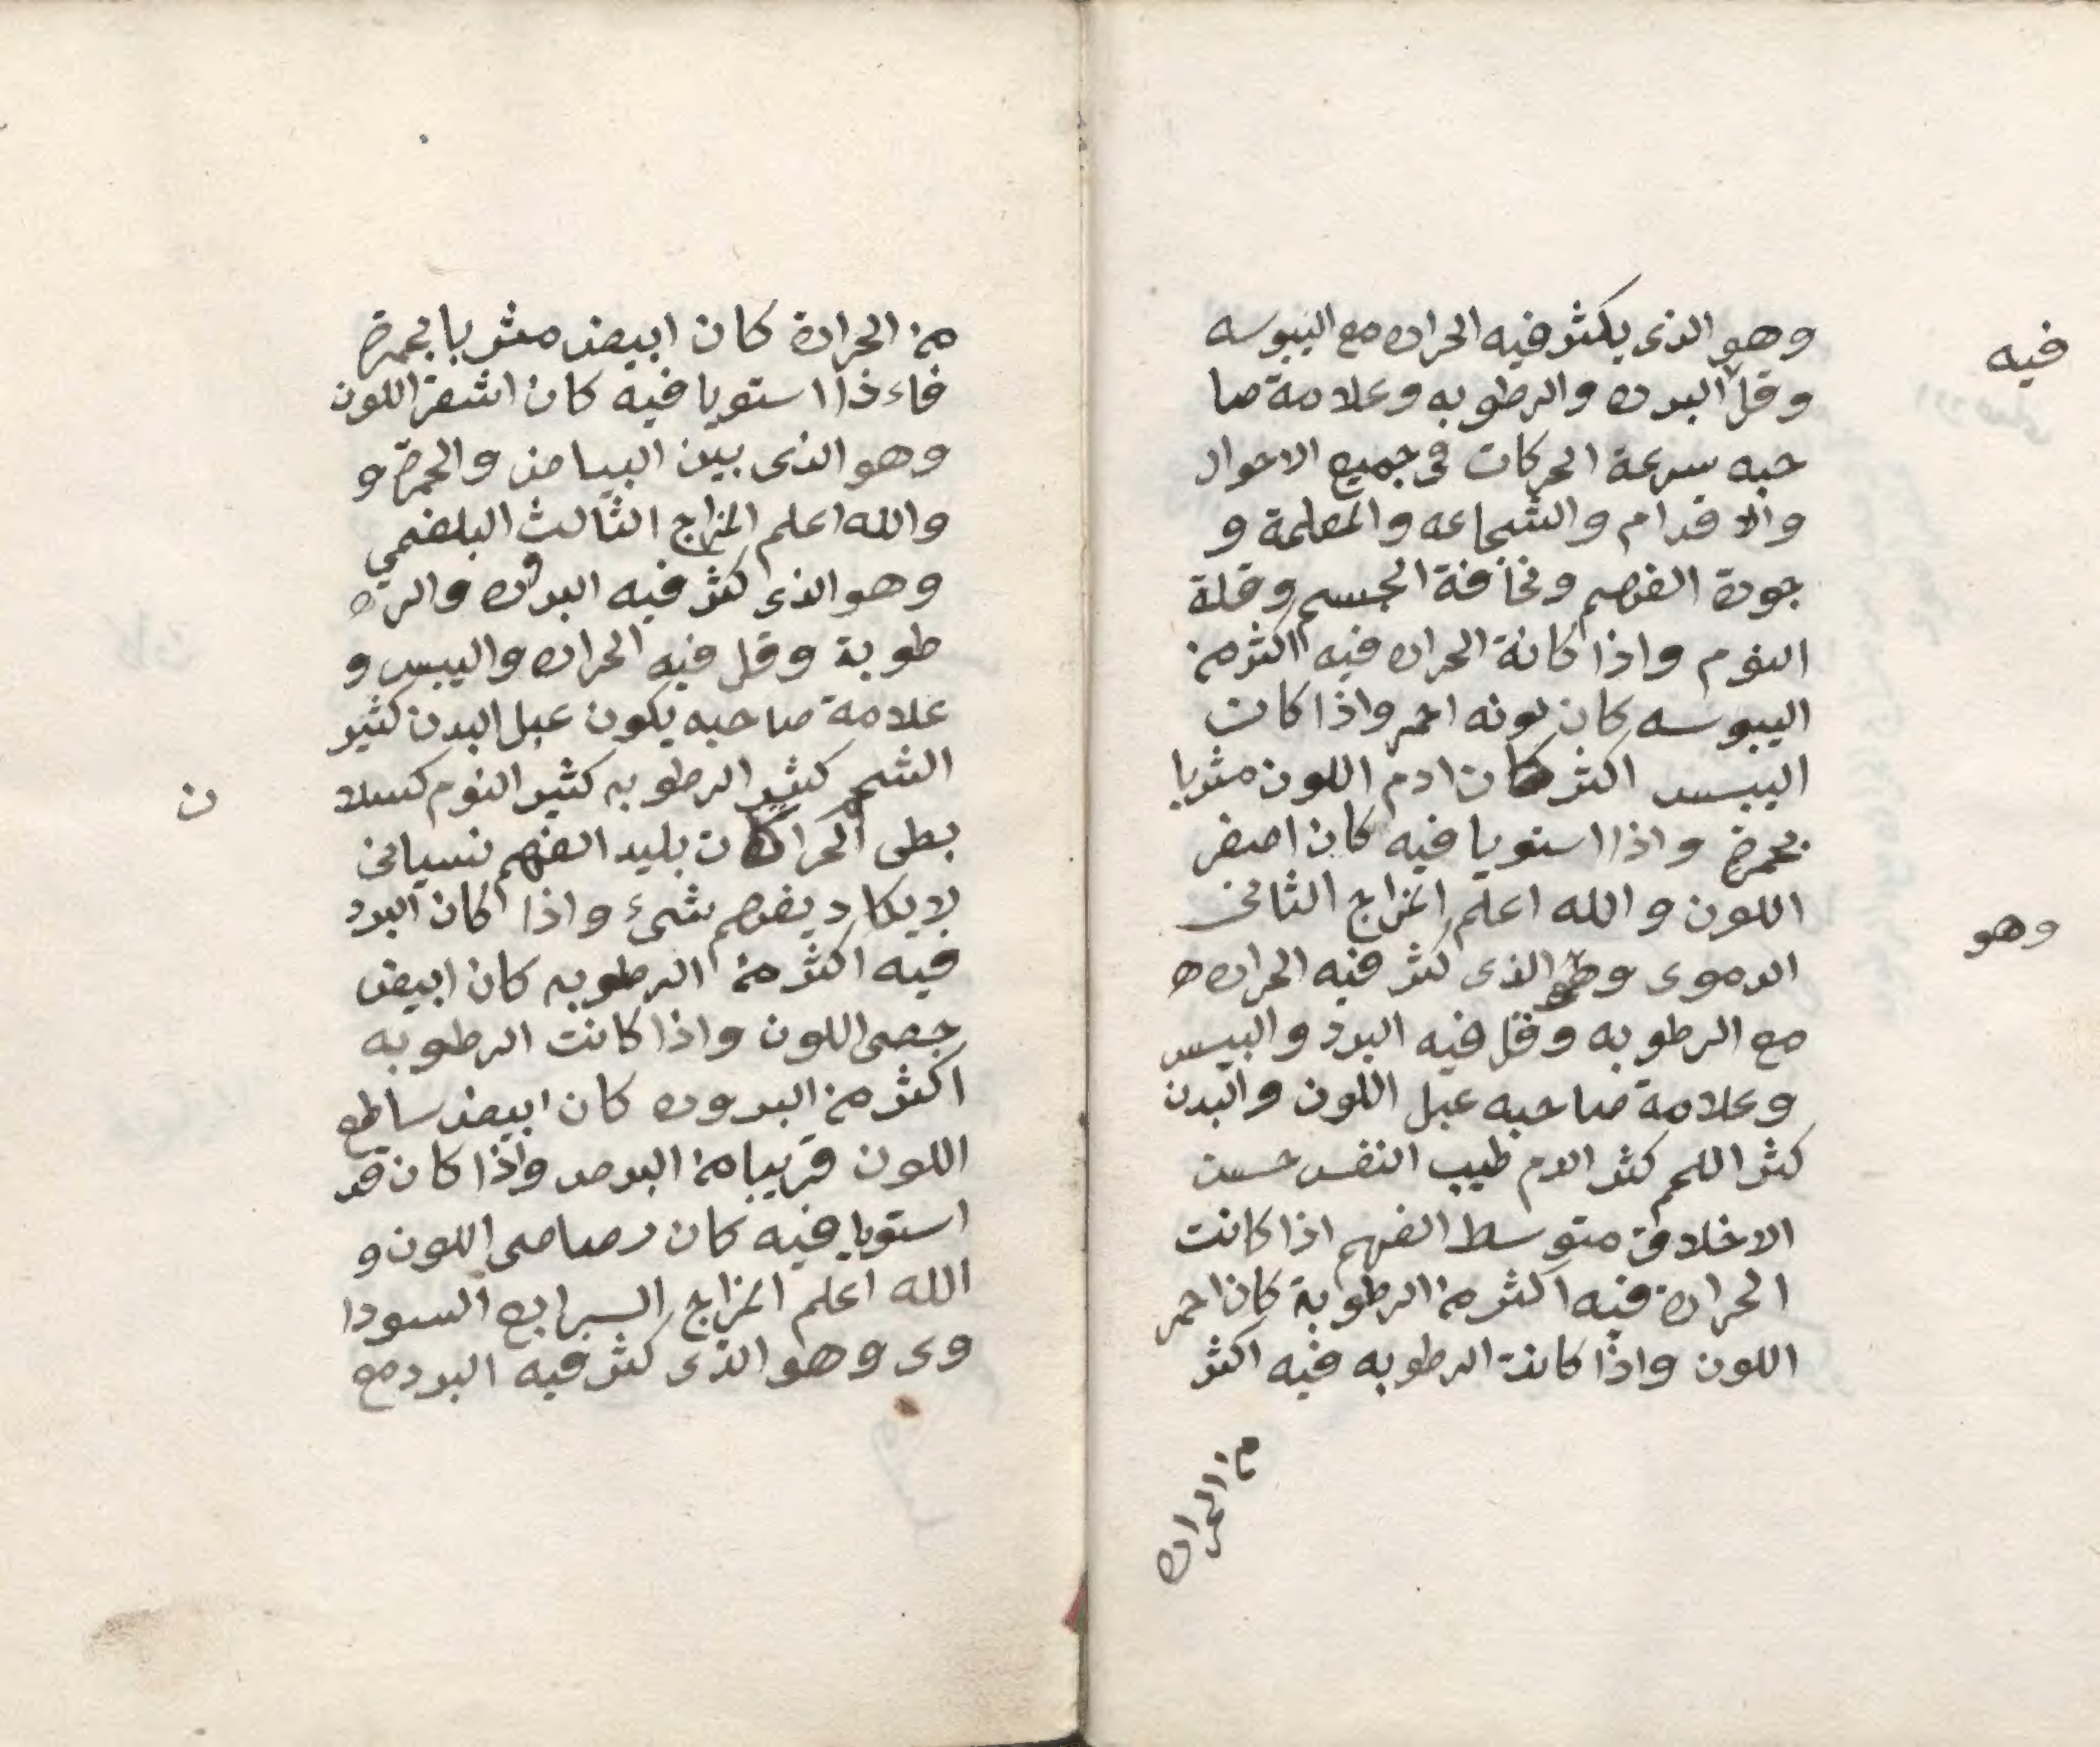 وهو الذى يكثر فيه الحراره مع اليبوسه
فيه
وقل البروده والرطوبه وعلامة صا
حبه سرعة الحركات فى جميع الاحوال
والاقدام والشجاعه والمعلمة و
جودة الفهم ونخافة الجسم وقلة
النوم واذا كانة الحراره فيه اكثر من
اليبوسه كان لونه احمر واذا كان
اليبس اكثر كان ادم اللون مشربا
بحمرة واذا استويا فيه كان اصفر
اللون والله اعلم المزاج الثانى
وهو
الدموى الذى كثر فيه الحراره
مع الرطوبه وقل فيه البرد واليبس
وعلامة صاحبه عبل اللون والبدن
كثر اللحم كثر الدم طيب النفس حسن
الاخلاق متوسط الفهم اذا كانت
الحرارة فيه اكثر من الرطوبة كان احمر
اللون واذا كانت الرطوبه فيه اكثر
من الحراره
من الحرارة كان ابيض مشربا بحمرة
فاءذا استويا فيه كان اشقر اللون
وهو الذى بين البياض والحمرة و
والله اعلم المزاج الثالث البلغمي
وهو الذى كثر فيه البروده والر
طوبة وقل فيه الحراره واليبس و
علامة صاحبه يكون عبل البدن كثير
الشحم كثير الرطوبه كثير النوم كسلا
ن
بطى الحراكات بليد الفهم نسيانى
لايكاد يفهم شىء واذا كان البرد
فيه اكثر من الرطوبه كان ابيض
جصى اللون واذا كانت الرطوبه
اكثر من البروده كان ابيض ساطع
اللون قريبا من البرص واذا كان قد
استويا فيه كان رصاصى اللون و
الله اعلم المزاج الرابع السودا
وى وهو الذى كثر فيه البرد مع